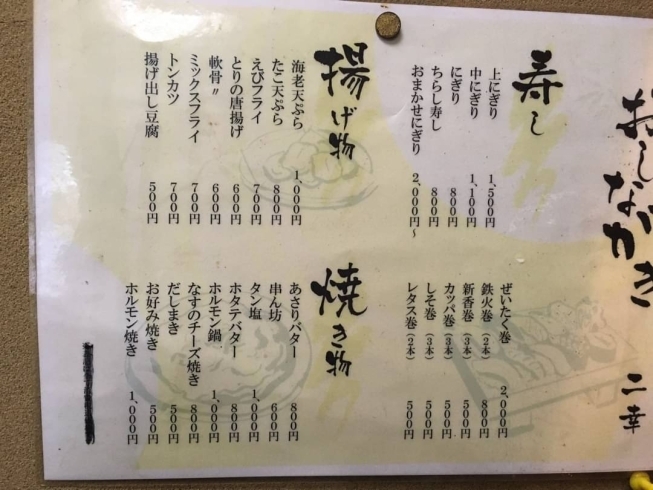 おしながき
二幸
寿し
上にぎり 1,500円
中にぎり 1,100円
にぎり 800円
ちらし寿し 800円
おまかせにぎり 2,000円~
ぜいたく巻 2,000円
鉄火巻(2本) 800円
新香巻(3本) 500円
カッパ巻(3本) 500円
しそ巻(3本) 500円
レタス巻(2本) 500円
揚げ物
海老天ぷら 1,000円
たこ天ぷら 800円
えびフライ 700円
とりの唐揚げ 600円
軟骨〃 600円
ミックスフライ 700円
トンカツ 700円
揚げ出し豆腐 500円
焼き物
あさりバター 800円
串ん坊 600円
タン塩 1,000円
ホタテバター 800円
ホルモン鍋 1,000円
なすのチーズ焼き 800円
だしまき 500円
お好み焼き 500円
ホルモン焼き 1,000円